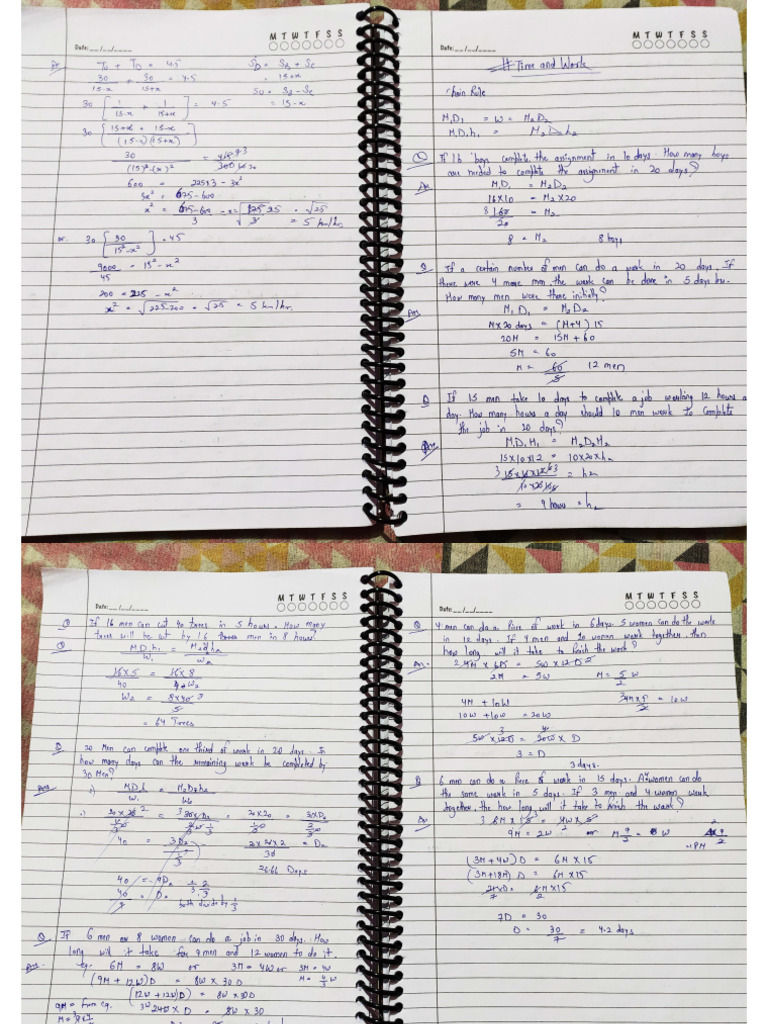 Date: __/__/____
M T W T F S S
Ans TU + TD = 4.5
SD = SB + SC
30/15-x + 30/15+x = 4.5
= 15+x
SU = SB - SC
30 [1/15-x + 1/15+x] = 4.5
= 15-x
30 [15+x + 15-x / (15-x)(15+x)]
600 = 225×3 - 3x²
3x² = 675-600
= 5 km/hr
or 30 [30/15²-x²] = 4.5
9000/45 = 15² - x²
200 = 225 - x²
x² = √225-200 = √25 = 5 km/hr.
Date: __/__/____
M T W T F S S
# Time and Work
Chain Rule
M1D1 = W = M2D2
M1D1h1 = M2D2h2
Q If 16 boys complete the assignment in 10 days. How many boys
are needed to complete the assignment in 20 days?
Ans M1D1 = M2D2
16×10 = M2×20
8 160/20 = M2
8 = M2 8 boys
Q If a certain number of men can do a work in 20 days. If
there were 4 more men the work can be done in 5 days
How many men were there initially?
Ans M1D1 = M2D2
M×20 days = (M+4) 15
20M = 15M + 60
5M = 60
M = 60/5 12 men
Q If 15 men take 10 days to complete a job working 12 hours a
day. How many hours a day should 10 men work to complete
the job in 20 days?
Ans M1D1H1 = M2D2H2
15×10×12 = 10×20×h2
= h2
= 9 hours = h2
Date: __/__/____
M T W T F S S
Q If 16 men can cut 40 trees in 5 hours. How many
trees will be cut by 16 men in 8 hours?
M1D1h1/W1 = M2D2h2/W2
16×5/40 = 16×8/W2
W2 = 8×40/5
= 64 Trees
Q 20 Men can complete one third of work in 20 days. In
how many days can the remaining work be completed by
30 Men?
Ans
26.66 Days
both divide by 1/3
Q If 6 men or 8 women can do a job in 30 days. How
long will it take for 9 men and 12 women to do it.
Ans eq. 6M = 8W or 3M = 4W or 3M = 4W
M = 4/3 W
(9M + 12W)D = 8W × 30 D
(12W + 12W)D = 8W × 30 D
9M = from eq. 24W × D = 8W × 30
Date: __/__/____
M T W T F S S
Q 4 men can do a piece of work in 6 days. 5 women can do the work
in 12 days. If 4 men and 10 women work together, then
how long will it take to finish the work?
Ans. 4M × 6D = 5W × 12 D
2M = 5W M = 5/2 W
4M + 10W
10W + 10W = 20W
5W × 12 D = 20W × D
3 = D
3 days.
Q 6 men can do a piece of work in 15 days. 4 women can do
the same work in 5 days. If 3 men and 4 women work
together, the how long will it take to finish the work?
Ans
9M = 2W
(3M + 4W) D = 6M × 15
(3M + 18M) D = 6M × 15
7D = 30
D = 30/7 = 4.2 days